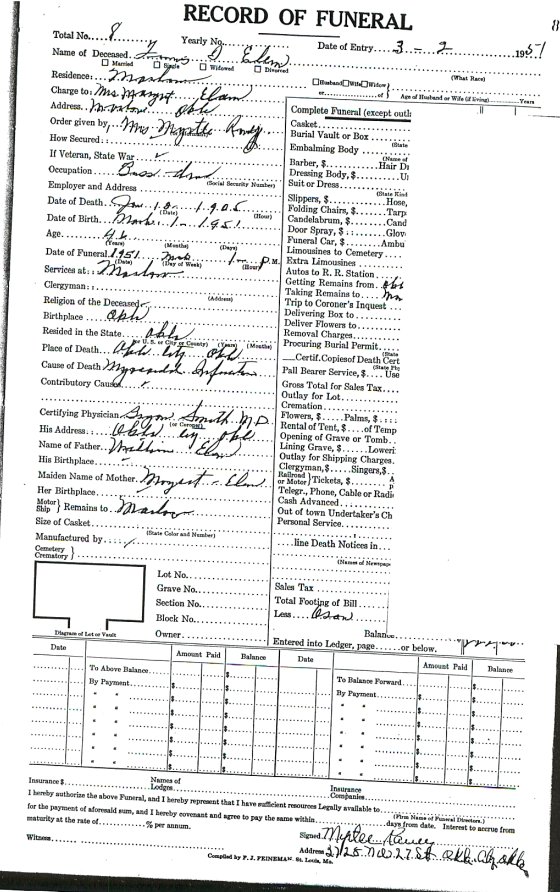 RECORD OF FUNERAL
8
Total No. 8 Yearly No. Date of Entry 3 - 2 1951
Name of Deceased Elam
Married Single Widowed Divorced (What Race)
Residence: Marlow Husband Wife Widow
or of Age of Husband or Wife (if living) Years
Charge to: Mrs Margret Elam
Address. Marlow Okla
Order given by, Mrs Myrtle
How Secured:
If Veteran, State War
Occupation
(Social Security Number)
Employer and Address
Date of Death Jan. 10 - 1905
(Date) (Hour)
Date of Birth March 1 - 1951
Age 46
(Years) (Months) (Days)
Date of Funeral 1951 Mch 1 P.M.
(Date) (Day of Week) (Hour)
Services at: Marlow
Clergyman:
(Address)
Religion of the Deceased
Birthplace Okla
Resided in the State Okla
(or U. S. or City or County) (Years) (Months)
Place of Death Okla City Okla
Cause of Death
Contributory Causes
Certifying Physician Smith M.D.
(or Coroner)
His Address Okla City Okla
Name of Father William Elam
His Birthplace
Maiden Name of Mother Elam
Her Birthplace
Motor Ship } Remains to Marlow
Size of Casket
(State Color and Number)
Manufactured by
Cemetery Crematory }
Complete Funeral (except outl
Casket
Burial Vault or Box
(State
Embalming Body
(Name of
Barber, $ Hair Dr
Dressing Body, $ U
Suit or Dress
(State Kind
Slippers, $ Hose,
Folding Chairs, $ Tarp
Candelabrum, $ Cand
Door Spray, $ Glov
Funeral Car, $ Ambu
Limousines to Cemetery
Extra Limousines
Autos to R. R. Station
Getting Remains from Okl
Taking Remains to
Trip to Coroner's Inquest
Delivering Box to
Deliver Flowers to
Removal Charges
Procuring Burial Permit
(State
Certif. Copies of Death Cert
(State Ph
Pall Bearer Service, $ Use
Gross Total for Sales Tax
Outlay for Lot
Cremation
Flowers, $ Palms, $
Rental of Tent, $ of Temp
Opening of Grave or Tomb
Lining Grave, $ Loweri
Outlay for Shipping Charges
Clergyman, $ Singers, $
Railroad or Motor } Tickets, $
Telegr., Phone, Cable or Radi
Cash Advanced
Out of town Undertaker's Ch
Personal Service
line Death Notices in
(Names of Newspape
Sales Tax
Total Footing of Bill
Less
Balance
Entered into Ledger, page or below.
Lot No.
Grave No.
Section No.
Block No.
Owner
Diagram of Lot or Vault
Date Amount Paid Balance Date Amount Paid Balance
To Above Balance $ To Balance Forward $
By Payment $ By Payment $
Insurance $ Names of Lodges Insurance Companies
I hereby authorize the above Funeral, and I hereby represent that I have sufficient resources Legally available to
(Firm Name of Funeral Directors.)
for the payment of aforesaid sum, and I hereby covenant and agree to pay the same within days from date. Interest to accrue from
maturity at the rate of % per annum.
Signed
Witness Address 3725 N.W. 27 St. Okla. City, Okla
Compiled by F. J. FEINEMAN, St. Louis, Mo.